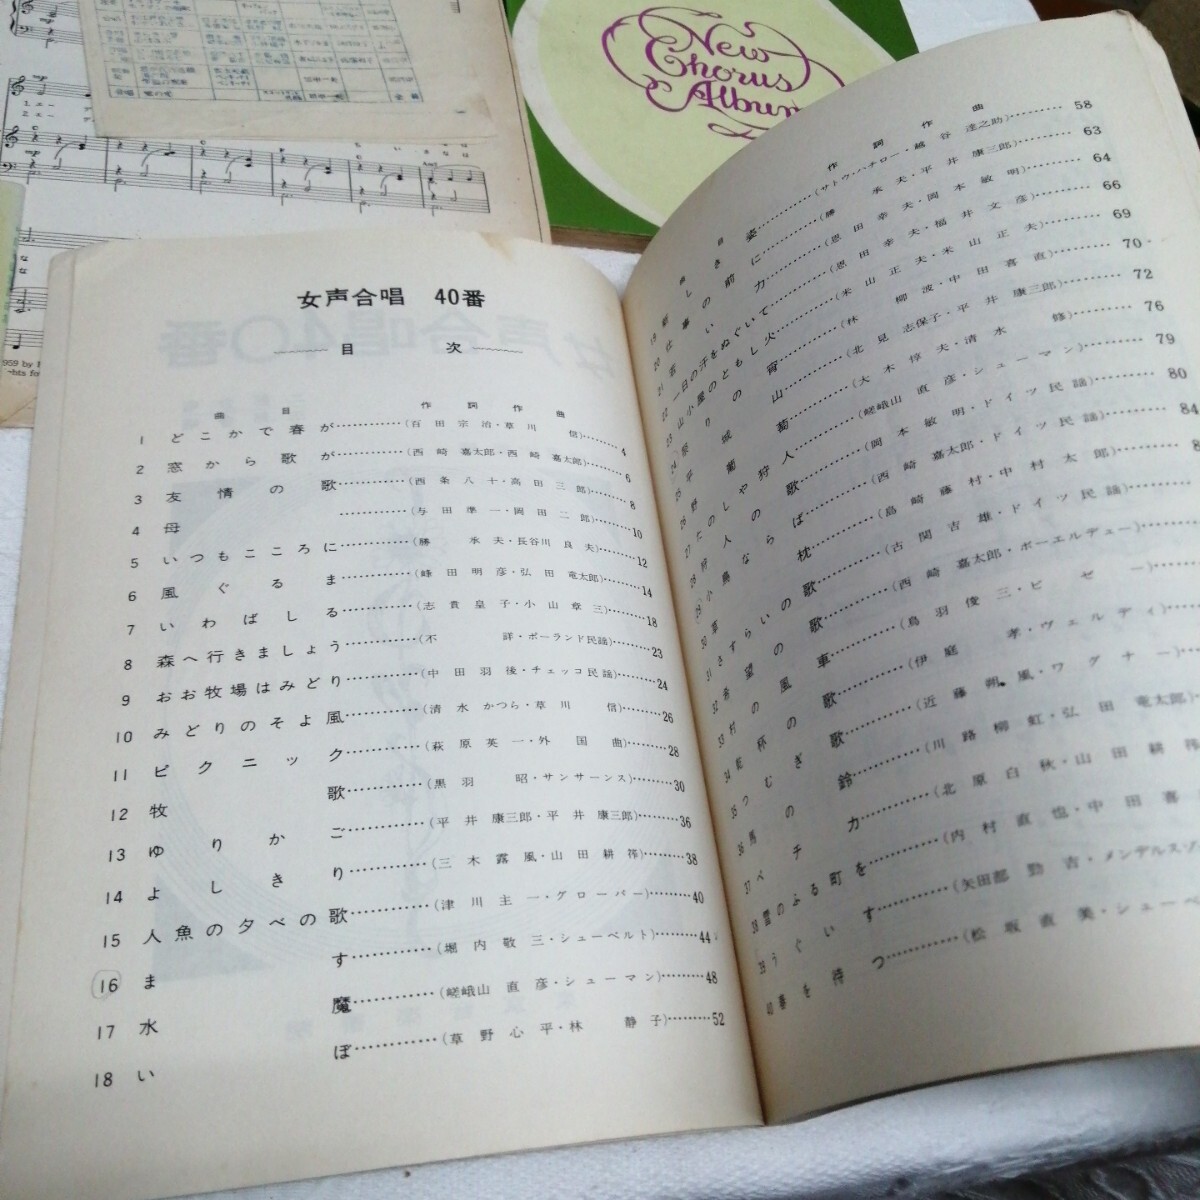 New
Chorus
Album
女声合唱 40番
目 次
曲 目 作 詞 作 曲
1 どこかで春が…………(百田宗治・草川 信)……4
2 窓から歌が…………(西崎嘉太郎・西崎嘉太郎)……6
3 友情の歌…………(西条八十・高田三郎)……8
4 母…………(与田準一・岡田二郎)……10
5 いつもこころに…………(勝 承夫・長谷川良夫)……12
6 風ぐるま…………(峰田明彦・弘田竜太郎)……14
7 いわばしる…………(志貴皇子・小山章三)……18
8 森へ行きましょう…………(不 詳・ポーランド民謡)……23
9 おお牧場はみどり…………(中田羽後・チェッコ民謡)……24
10 みどりのそよ風…………(清水かつら・草川 信)……26
11 ピクニック…………(萩原英一・外国曲)……28
12 牧歌…………(黒羽 昭・サンサーンス)……30
13 ゆりかご…………(平井康三郎・平井康三郎)……36
14 よしきり…………(三木露風・山田耕筰)……38
15 人魚の夕べの歌…………(津川主一・グローバー)……40
16 ます…………(堀内敬三・シューベルト)……44
17 水魔…………(嵯峨山直彦・シューマン)……48
18 いぼ…………(草野心平・林 静子)……52
曲 目 作 詞 作 曲
19 姿…………(サトウ・ハチロー・越谷達之助)……58
20 仕事の前に…………(勝 承夫・平井康三郎)……63
21 力…………(恩田幸夫・岡本敏明)……64
22 一日の汗をぬぐいて…………(恩田幸夫・福井文彦)……66
23 山小屋のともし火…………(米山正夫・米山正夫)……69
24 祭りの宵…………(林 柳波・中田喜直)……70
25 山…………(北見志保子・平井康三郎)……72
26 野葡萄…………(大木惇夫・清水 修)……76
27 たのしや狩人…………(嵯峨山直彦・シューマン)……79
28 狩人の歌…………(岡本敏明・ドイツ民謡)……80
29 小鳥ならば…………(西崎嘉太郎・ドイツ民謡)……84
30 草枕…………(島崎藤村・中村太郎)……8
31 さすらいの歌…………(古関吉雄・ドイツ民謡)
32 希望の歌…………(西崎嘉太郎・ボーエルデュー)
33 村の風車…………(鳥羽俊三・ビゼー)
34 乾杯の歌…………(伊庭 孝・ヴェルディ)
35 つむぎ歌…………(近藤朔風・ワグナー)
36 馬の鈴…………(川路柳虹・弘田竜太郎)
37 ペチカ…………(北原白秋・山田耕筰
38 雪のふる町を…………(内村直也・中田喜
39 うぐいす…………(矢田部勁吉・メンデルスゾ
40 春を待つ…………(松坂直美・シューベ